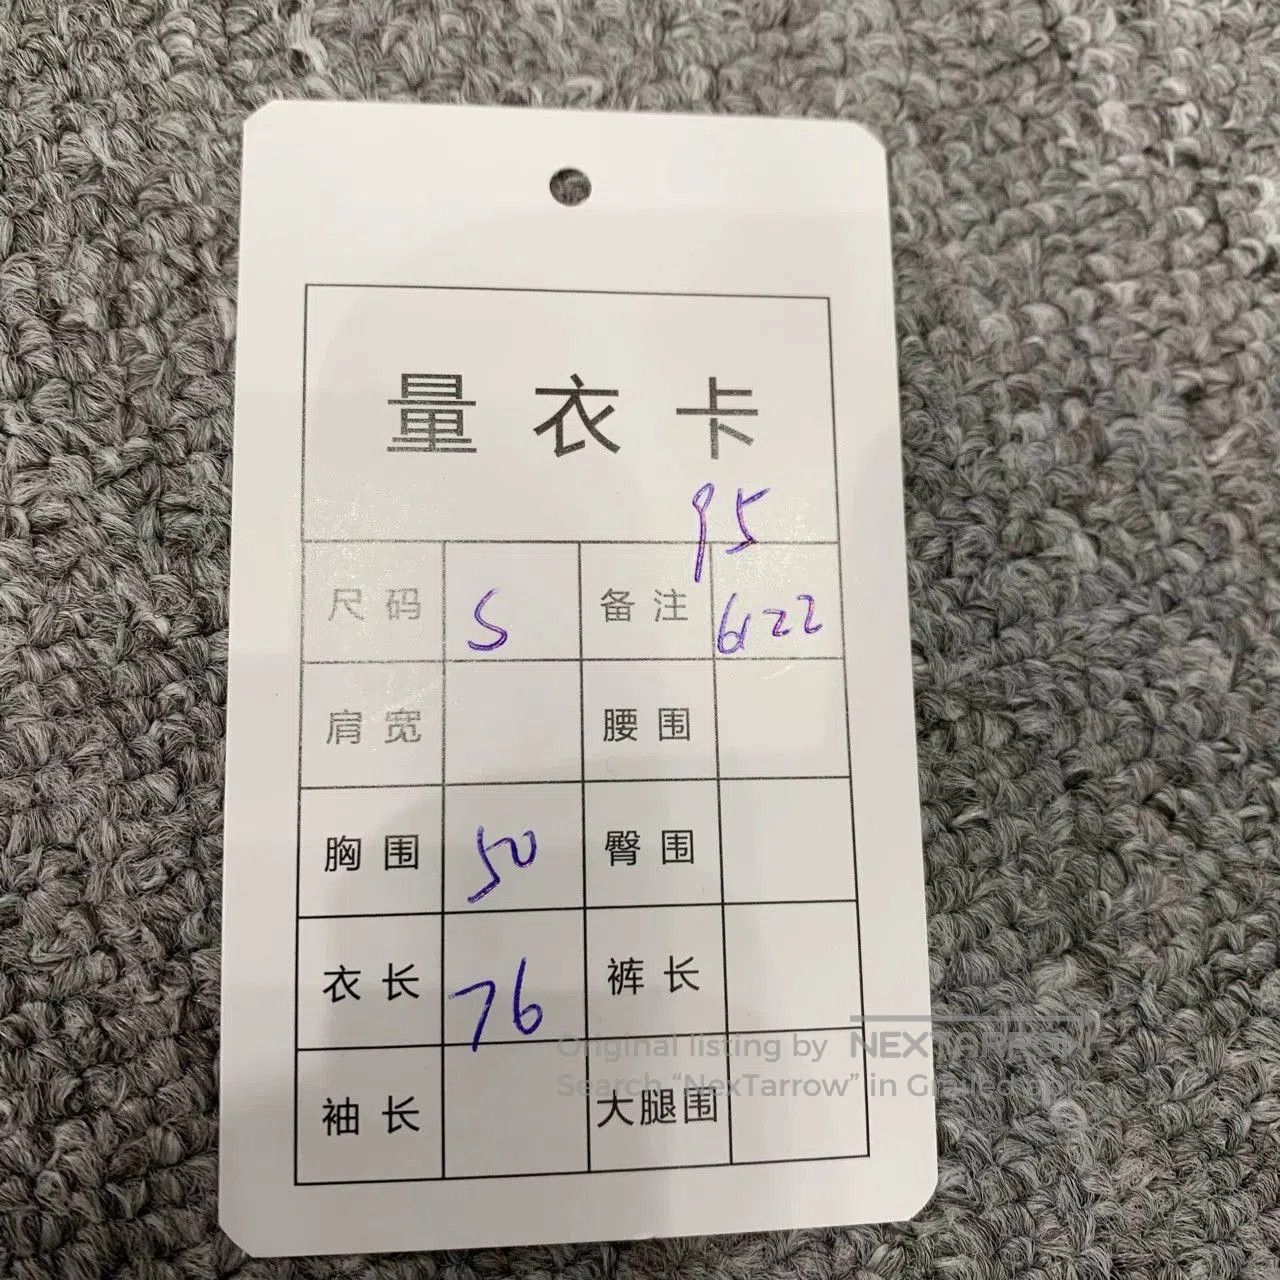 量衣卡
95
尺码 S 备注 6122
肩宽 腰围
胸围 50 臀围
衣长 76 裤长
Original listing by NEXTARROW
Search "NexTarrow" in
袖长 大腿围